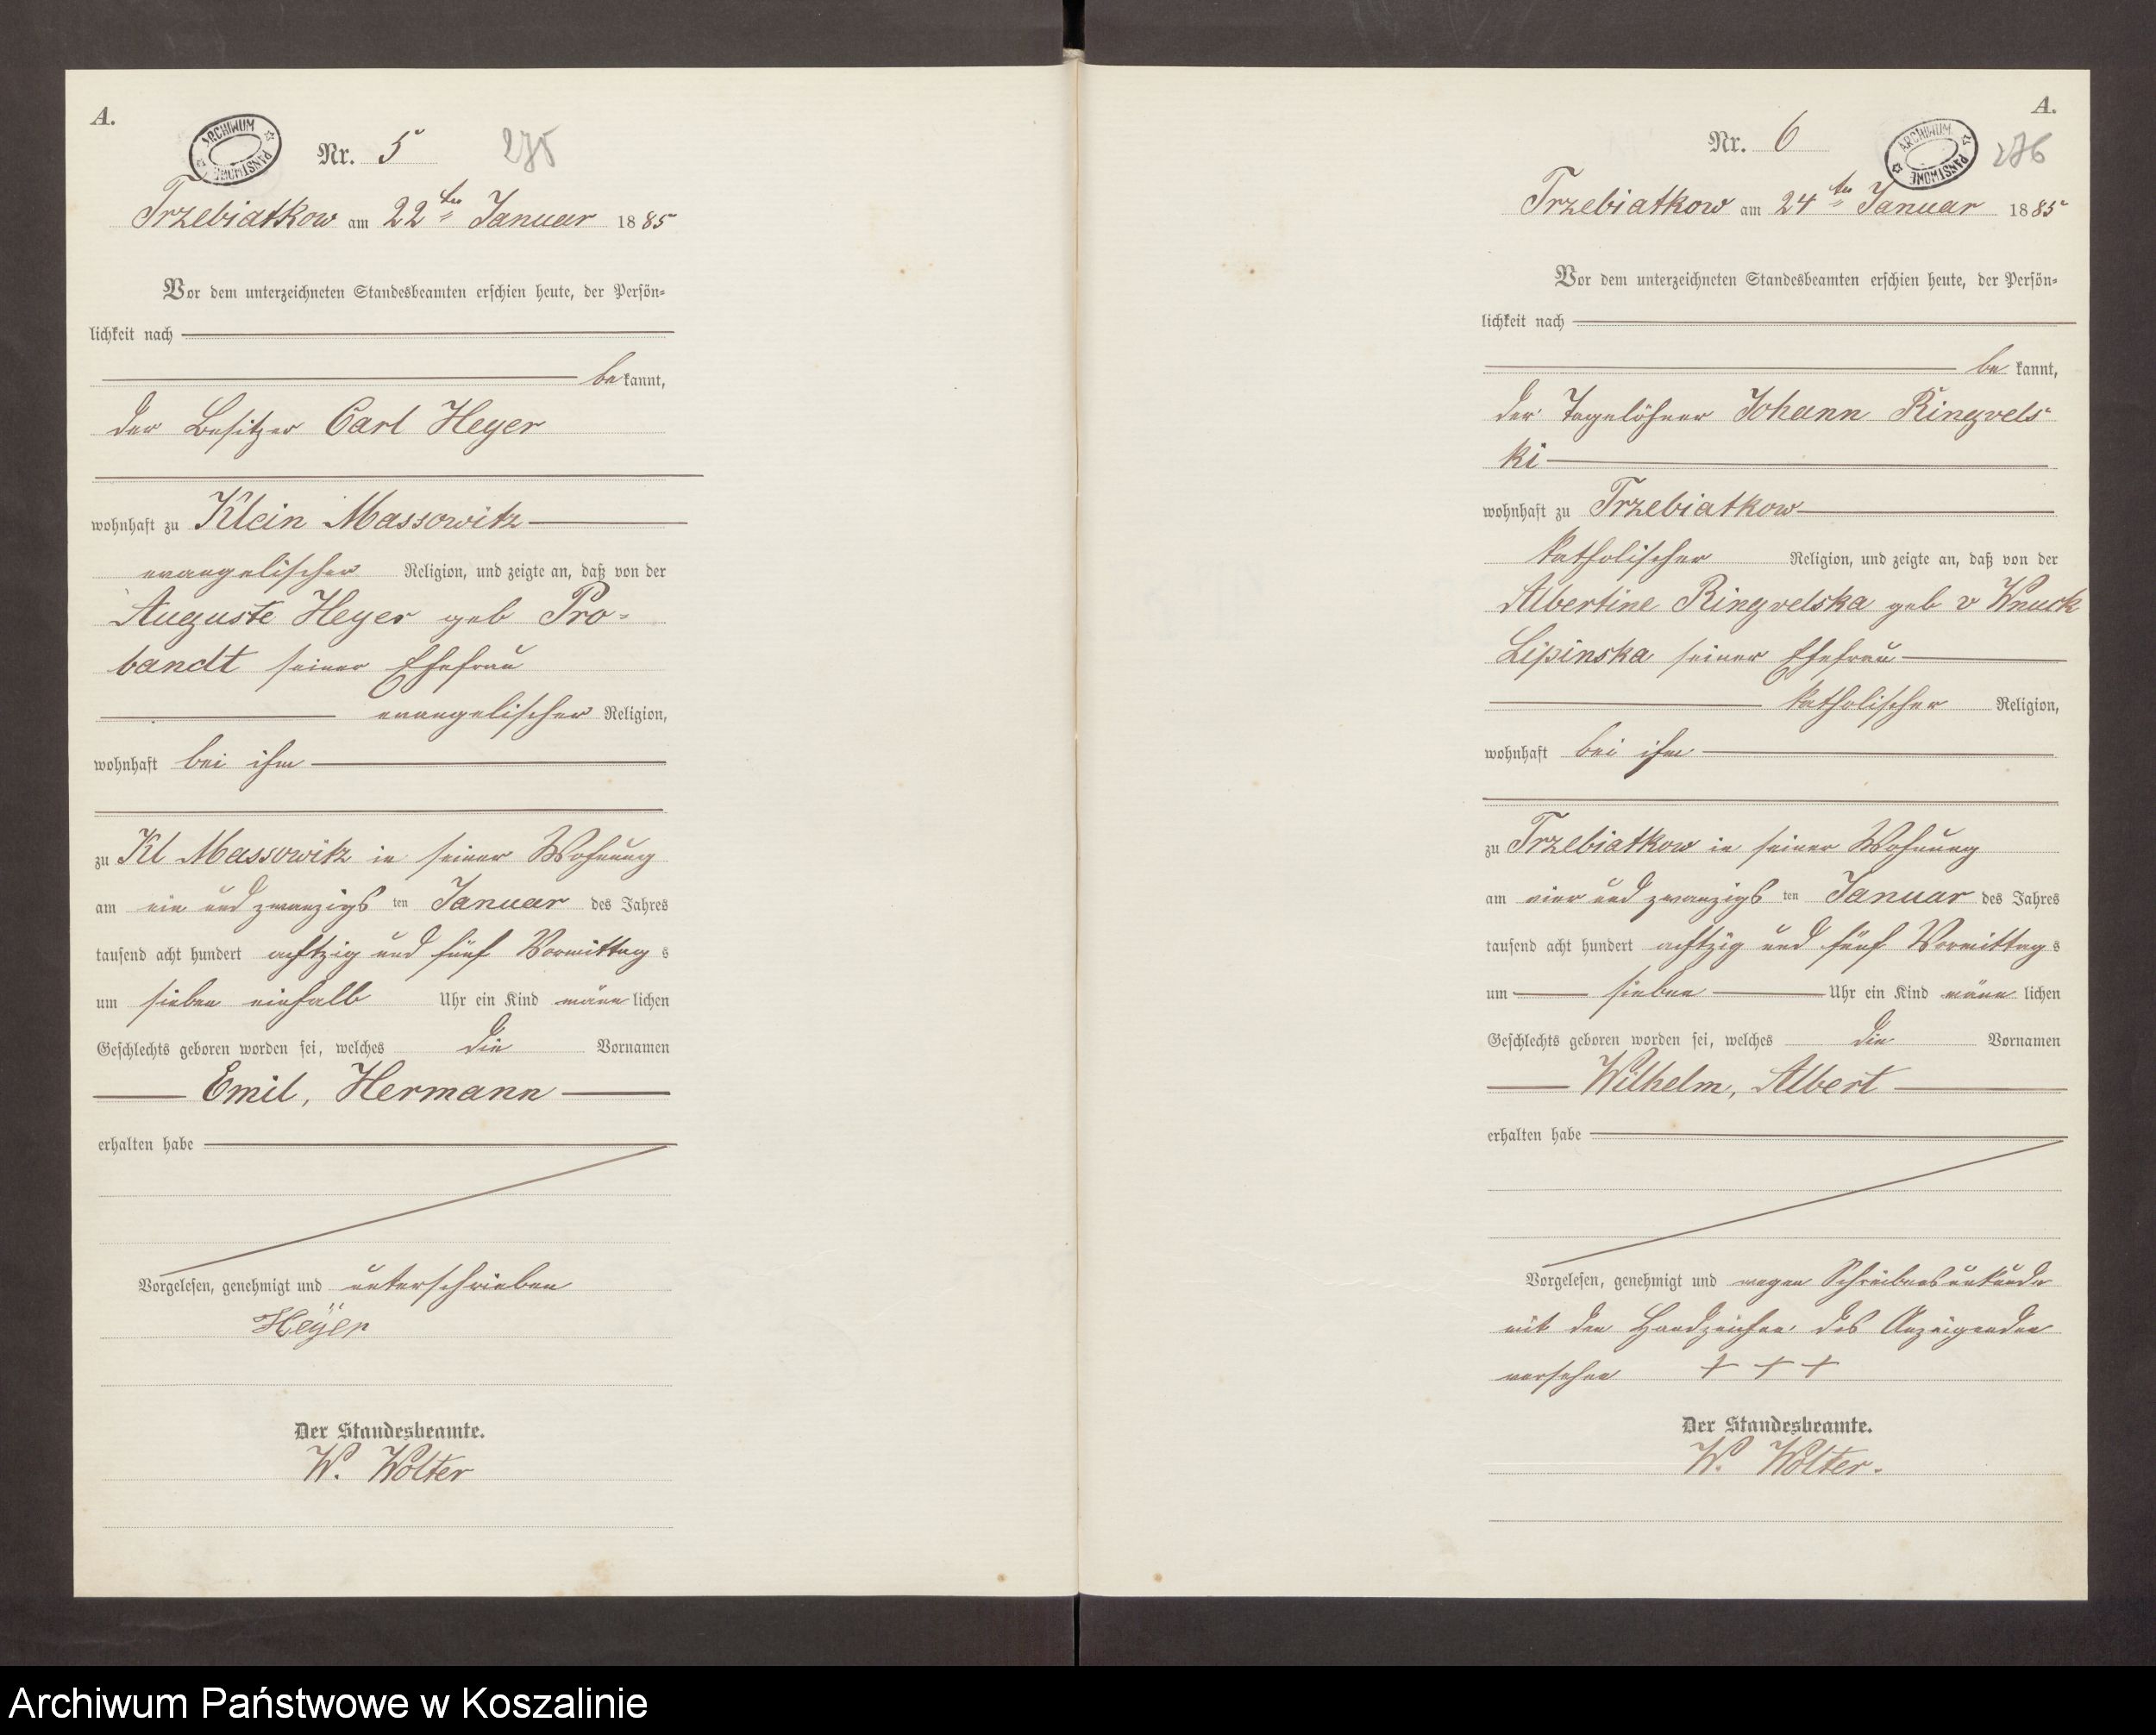 A.
ARCHIWUM PAŃSTWOWE
Nr. 5
275
Trzebiatkow am 22ten Januar 1885
Vor dem unterzeichneten Standesbeamten erschien heute, der Persön=
lichkeit nach
bekannt,
der Besitzer Carl Heyer
wohnhaft zu Klein Massowitz
evangelischer Religion, und zeigte an, daß von der
Auguste Heyer geb Pro=
bandt seiner Ehefrau
evangelischer Religion,
wohnhaft bei ihm
zu Kl Massowitz in seiner Wohnung
am ein und zwanzigsten Januar des Jahres
tausend acht hundert achtzig und fünf Vormittags
um sieben einhalb Uhr ein Kind männlichen
Geschlechts geboren worden sei, welches die Vornamen
Emil, Hermann
erhalten habe
Vorgelesen, genehmigt und unterschrieben
Heÿer
Der Standesbeamte.
W. Wolter
A.
Nr. 6
ARCHIWUM PAŃSTWOWE
276
Trzebiatkow am 24ten Januar 1885
Vor dem unterzeichneten Standesbeamten erschien heute, der Persön=
lichkeit nach
bekannt,
der Tagelöhner Johann Ringvels-
ki
wohnhaft zu Trzebiatkow
katholischer Religion, und zeigte an, daß von der
Albertine Ringvelska geb v Wnuck
Lipinska seiner Ehefrau
katholischer Religion,
wohnhaft bei ihm
zu Trzebiatkow in seiner Wohnung
am vier und zwanzigsten Januar des Jahres
tausend acht hundert achtzig und fünf Vormittags
um sieben Uhr ein Kind männlichen
Geschlechts geboren worden sei, welches die Vornamen
Wilhelm, Albert
erhalten habe
Vorgelesen, genehmigt und wegen Schreibensunkunde
mit den Handzeichen des Anzeigenden
versehen + + +
Der Standesbeamte.
W. Wolter.
Archiwum Państwowe w Koszalinie